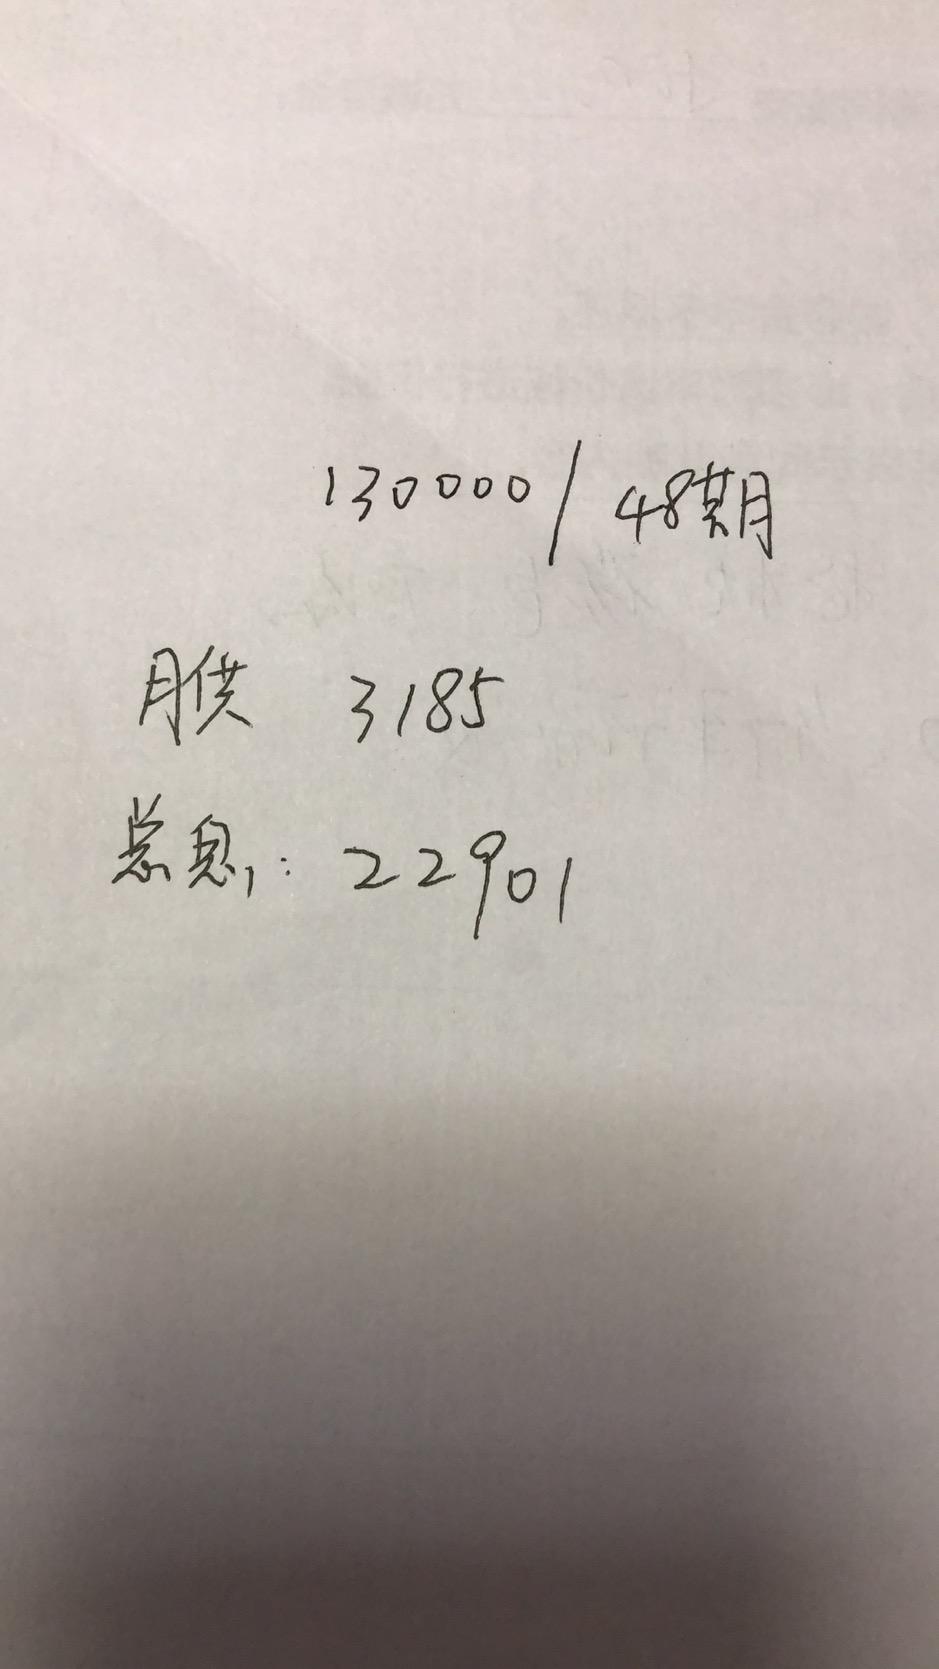 130000/48期
月供 3185
总息: 22901